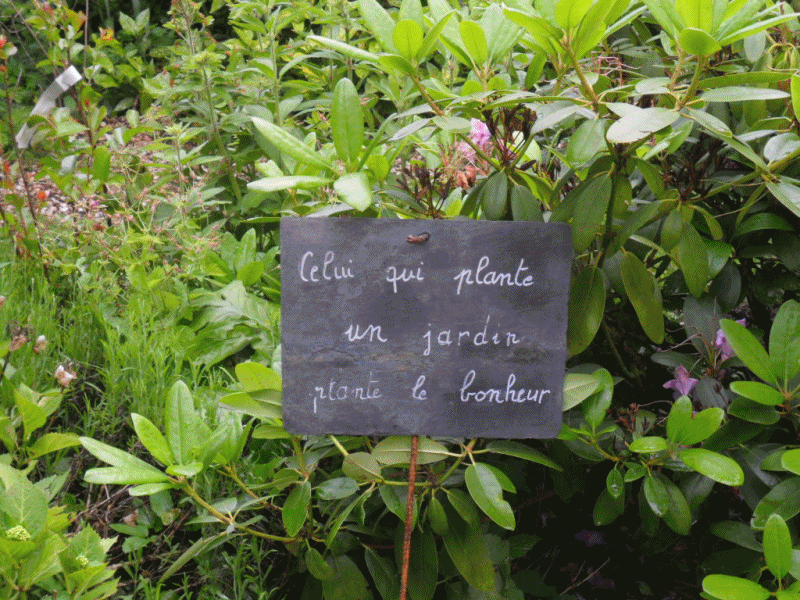 Celui qui plante
un jardin
plante le bonheur